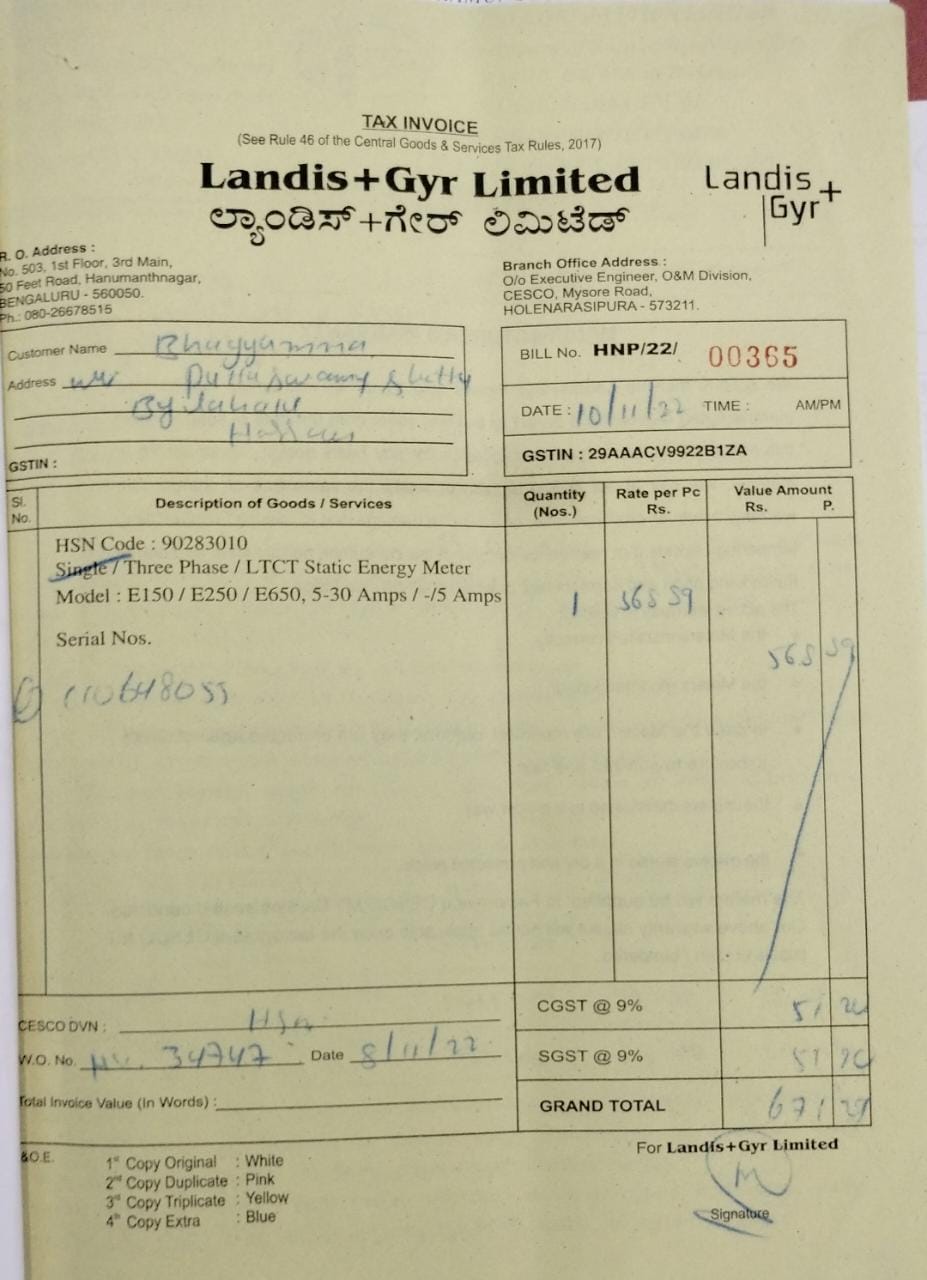 TAX INVOICE
(See Rule 46 of the Central Goods & Services Tax Rules, 2017)
Landis+Gyr Limited
ಲ್ಯಾಂಡಿಸ್+ಗೇರ್ ಲಿಮಿಟೆಡ್
Landis
Gyr+
R. O. Address :
No. 503, 1st Floor, 3rd Main,
50 Feet Road, Hanumanthnagar,
BENGALURU - 560050.
Ph.: 080-26678515
Branch Office Address :
O/o Executive Engineer, O&M Division,
CESCO, Mysore Road,
HOLENARASIPURA - 573211.
Customer Name Bhagyamma
Address
Hassan
GSTIN :
BILL No. HNP/22/ 00365
DATE : 10/11/22 TIME : AM/PM
GSTIN : 29AAACV9922B1ZA
Sl. No. Description of Goods / Services Quantity (Nos.) Rate per Pc Rs. Value Amount Rs. P.
HSN Code : 90283010
Single / Three Phase / LTCT Static Energy Meter
Model : E150 / E250 / E650, 5-30 Amps / -/5 Amps 1 568 59
Serial Nos.
568 59
CGST @ 9% 51
CESCO DVN : Hsn
SGST @ 9% 51
W.O. No. 34747 Date 8/11/22
Total Invoice Value (In Words) :
GRAND TOTAL 671
&O.E.
For Landis+Gyr Limited
1st Copy Original : White
2nd Copy Duplicate : Pink
3rd Copy Triplicate : Yellow
4th Copy Extra : Blue
Signature